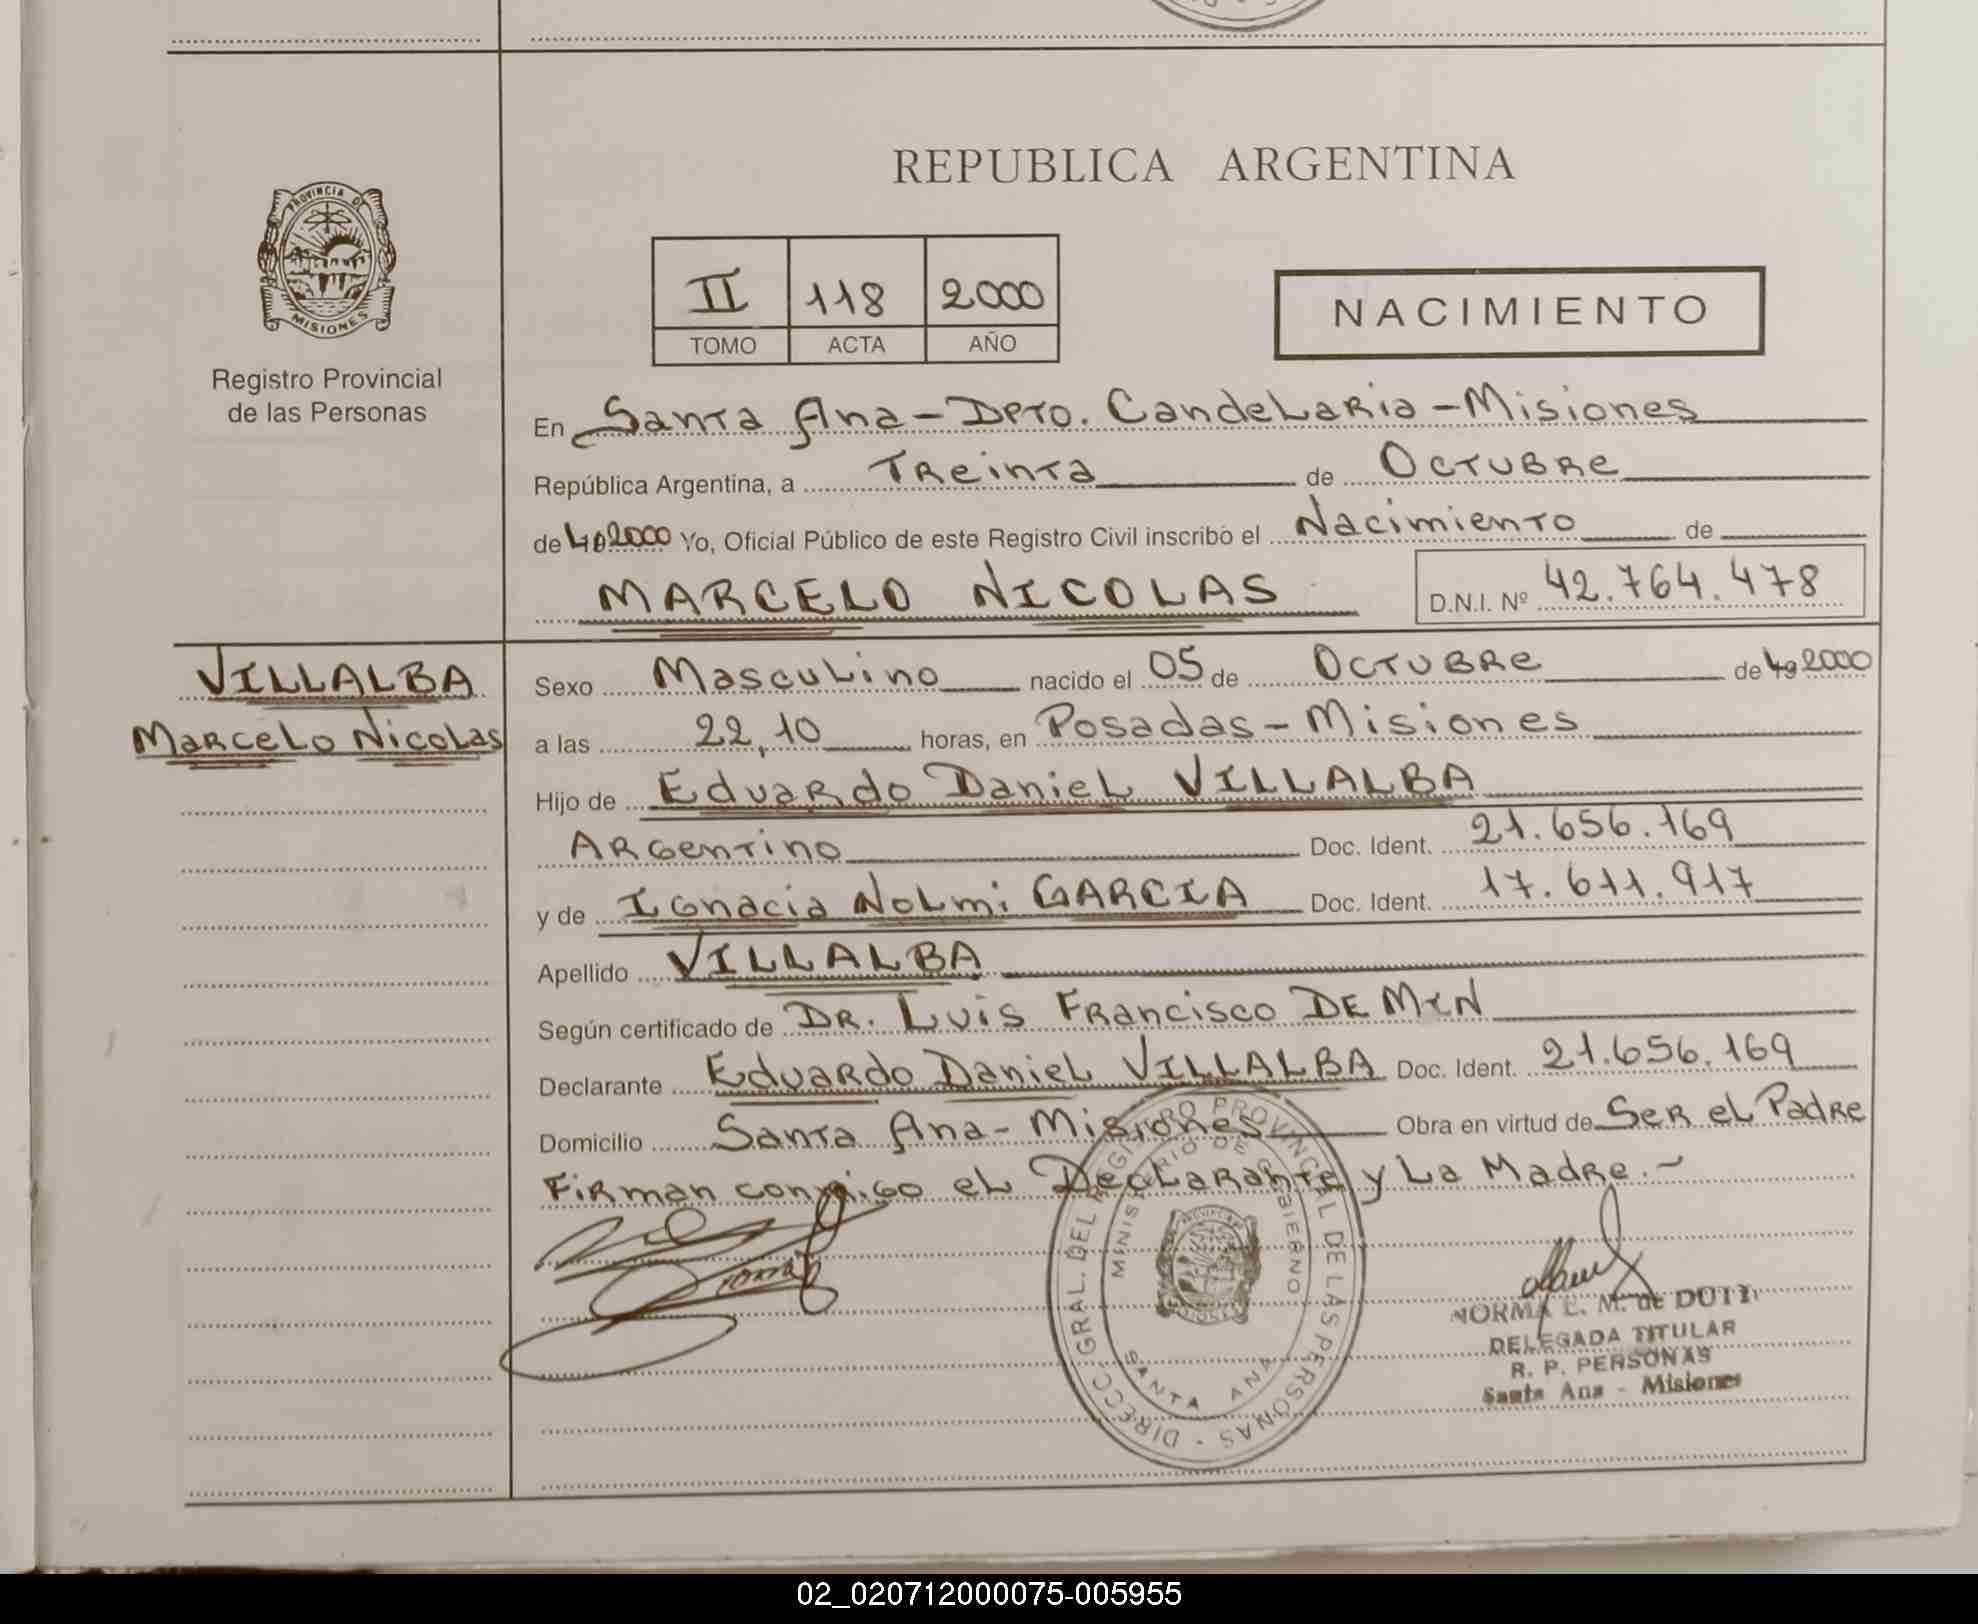 PROVINCIA DE
MISIONES
Registro Provincial
de las Personas
REPUBLICA ARGENTINA
II 118 2000
TOMO ACTA AÑO
NACIMIENTO
En Santa Ana - Dpto. Candelaria - Misiones
República Argentina, a Treinta de Octubre
de 2000 Yo, Oficial Público de este Registro Civil inscribo el Nacimiento de
MARCELO NICOLAS D.N.I. Nº 42.764.478
VILLALBA
Marcelo Nicolas
Sexo Masculino nacido el 05 de Octubre de 2000
a las 22,10 horas, en Posadas - Misiones
Hijo de Eduardo Daniel VILLALBA
Argentino Doc. Ident. 21.656.169
y de Ignacia Nolmi GARCIA Doc. Ident. 17.611.917
Apellido VILLALBA
Según certificado de DR. Luis Francisco DE MIN
Declarante Eduardo Daniel VILLALBA Doc. Ident. 21.656.169
Domicilio Santa Ana - Misiones Obra en virtud de Ser el Padre
Firman conmigo el Declarante y La Madre.-
DIRECC. GRAL. DEL REGISTRO PROVINCIAL DE LAS PERSONAS -
MINISTERIO DE GOBIERNO
SANTA ANA
NORMA E. M. de DOTI
DELEGADA TITULAR
R. P. PERSONAS
Santa Ana - Misiones
02_020712000075-005955